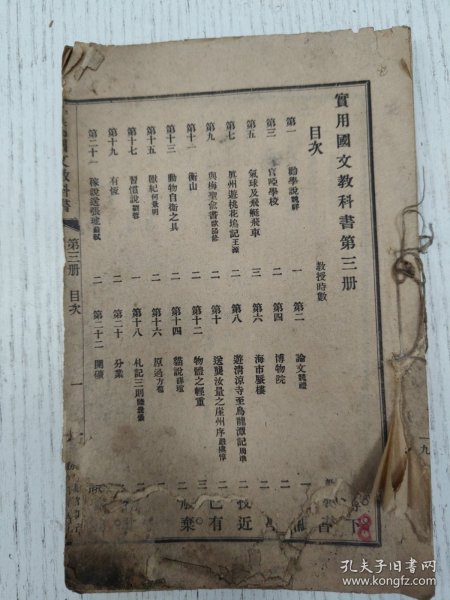 實用國文教科書第三册
目次
教授時數
第一 勸學說 一 第二 論文
第三 盲啞學校 二 第四 博物院 二
第五 氣球及飛艇飛車 三 第六 海市蜃樓
第七 杭州遊桃花塢記 二 第八 遊清涼寺至烏龍潭記 二
第九 與梅聖俞書 二 第十 送龔汝量之崖州序 二
第十一 衡山 二 第十二 物體之輕重 三
第十三 動物自衛之具 二 第十四 貓說 二
第十五 厭紀 何景明 二 第十六 原過 方苞 二
第十七 習慣說 劉蓉 二 第十八 札記三則
第十九 有恆 二 第二十 分業
第二十一 稼說送張琥 蘇軾 二 第二十二 開礦
國文教科書
第三册 目次
一
九
孔夫子旧书网
kongfz.com